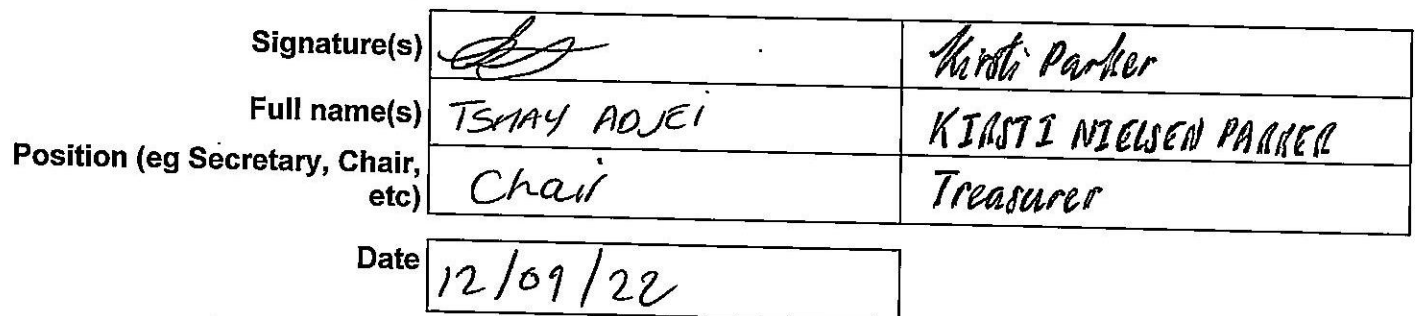 Signature(s) Kirsti Parker
Full name(s) TSHAY ADJEI KIRSTI NIELSEN PARKER
Position (eg Secretary, Chair, etc) Chair Treasurer
Date 12/09/22